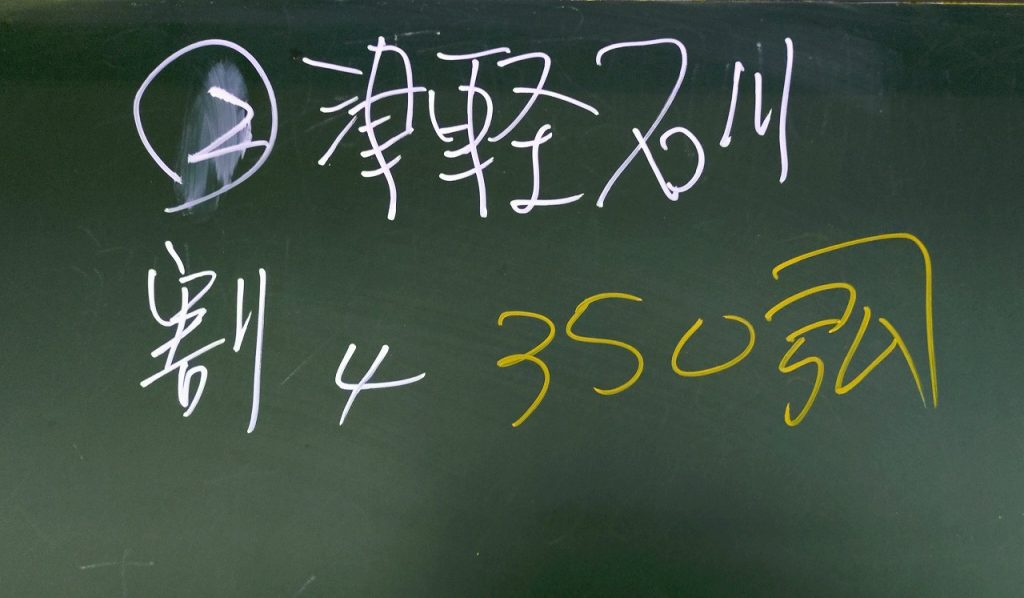 ② 津軽石川
割 4 350